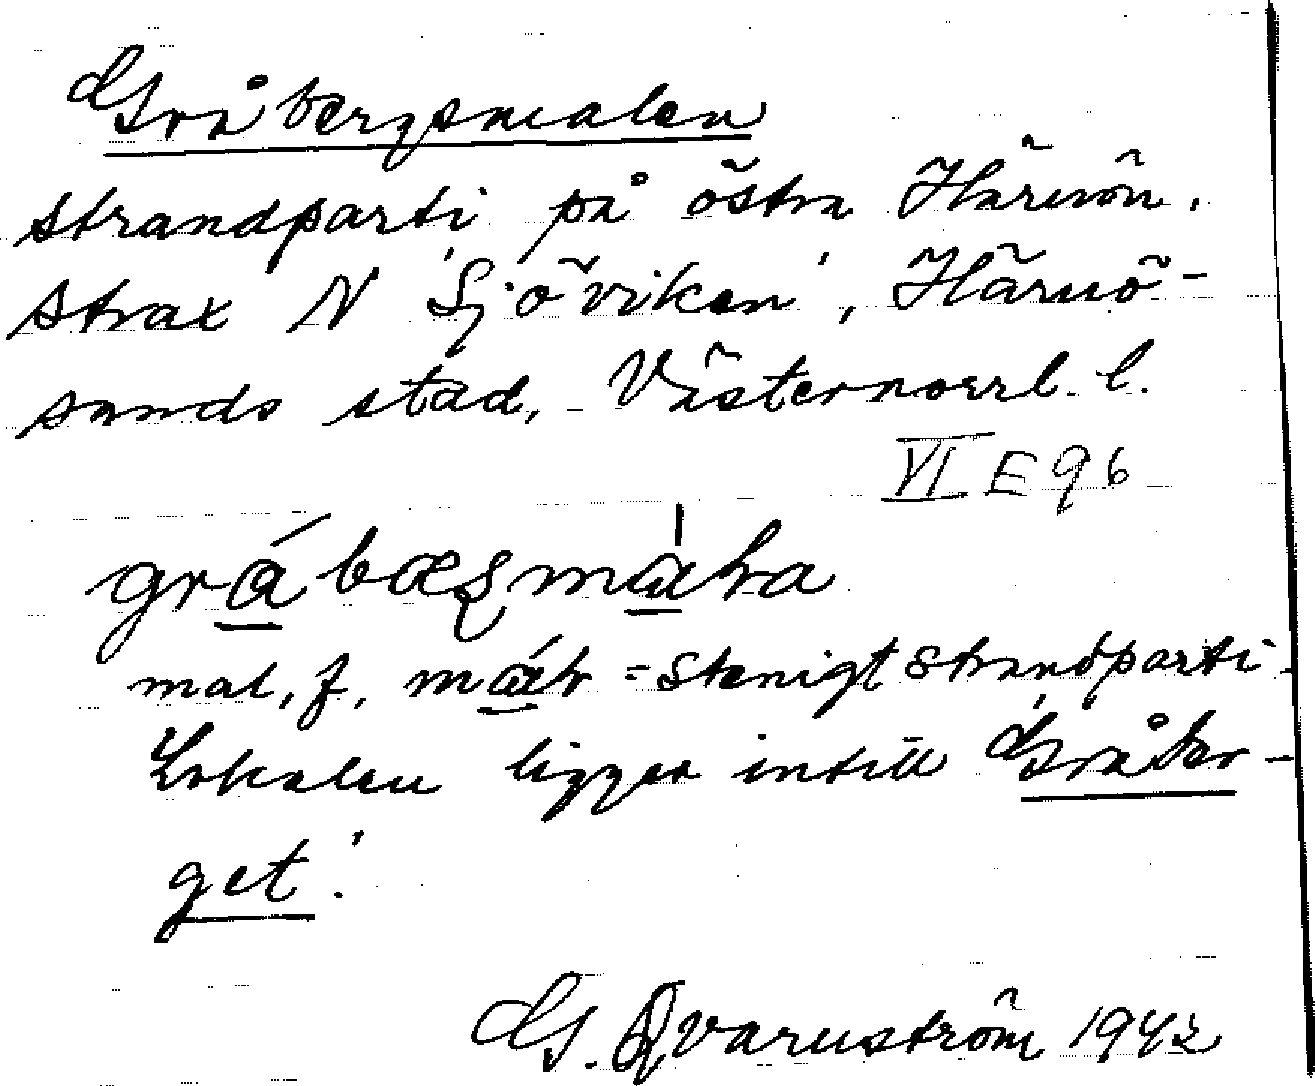 Gråbergsmalen
strandparti på östra Härnön,
strax N 'Sjöviken', Härnö-
sands stad, Västernorrl. l.
VI E 96
mal, f, = stenigt strandparti.
Lokalen ligger intill 'Gråber-
get'.
G. Qvarnström 1942